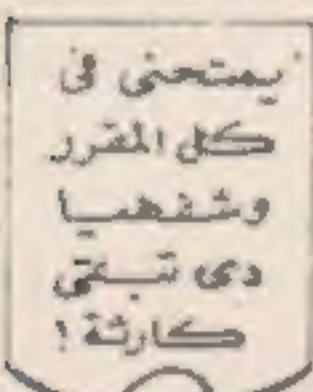 يمتحنى فى
كل المقرر
وشفهيا
دى تبقى
كارثة !